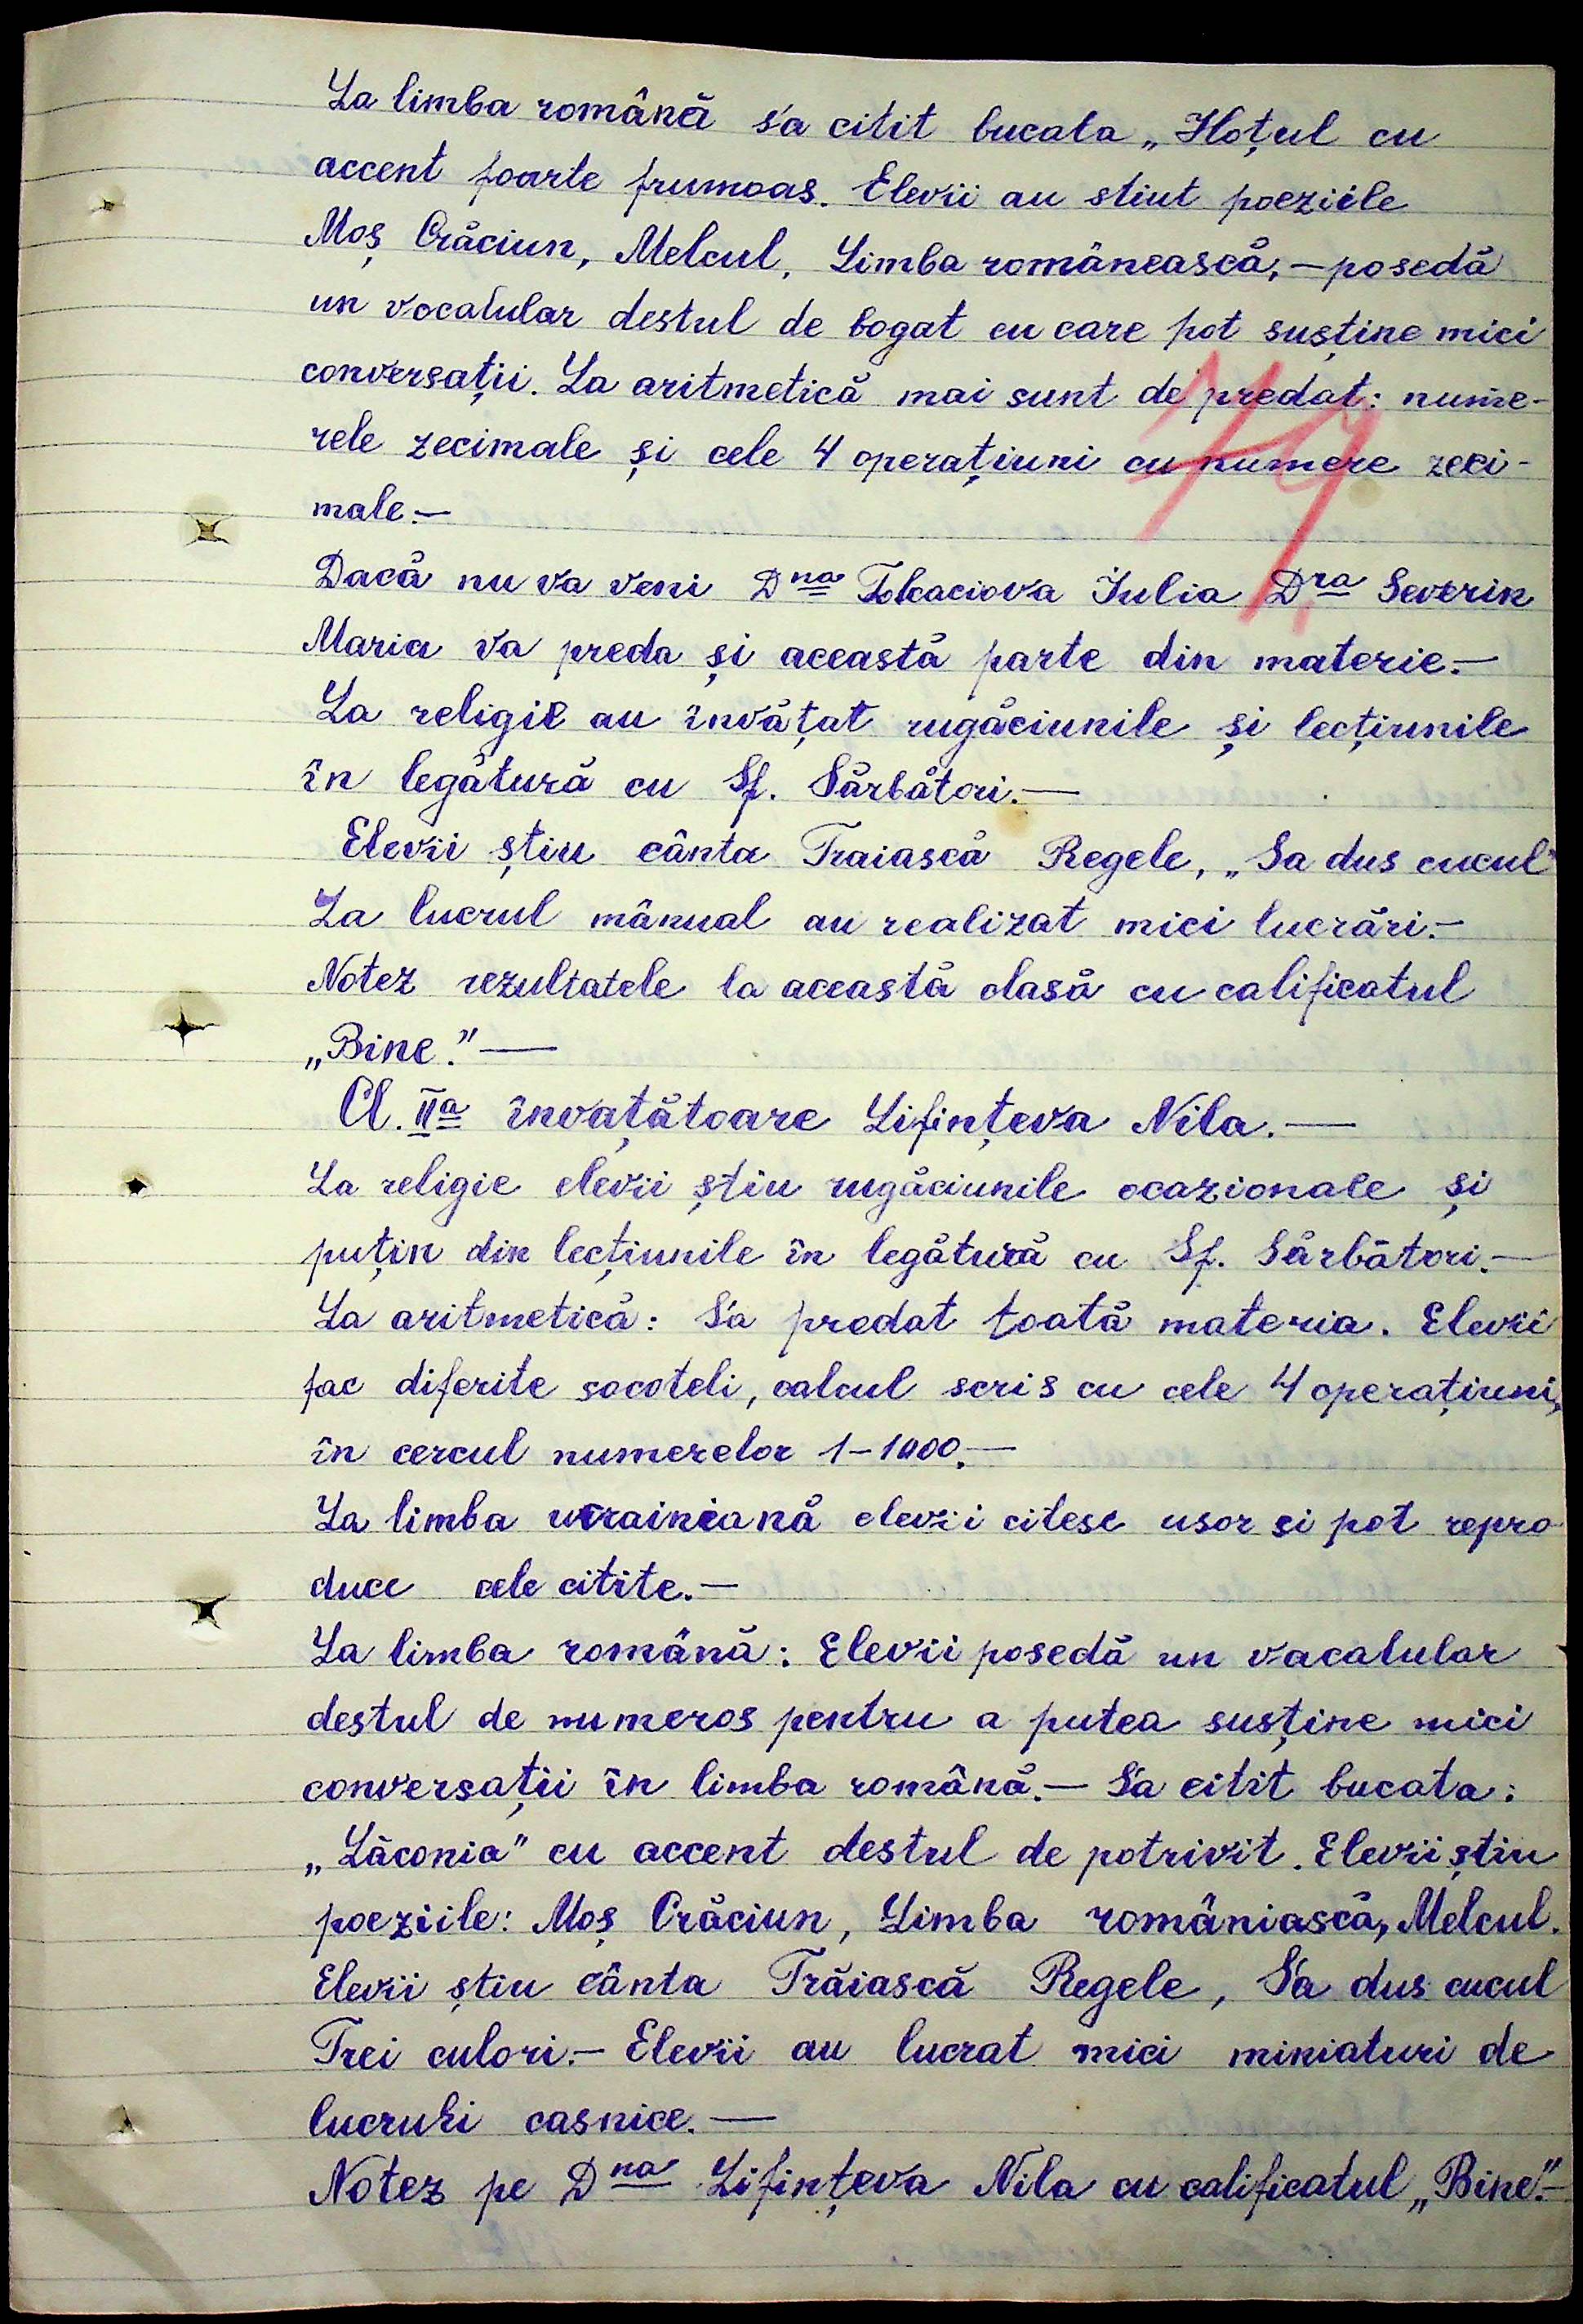 La limba română s'a citit bucata „Hoțul cu
accent foarte frumoas. Elevii au stiut poeziile
Moș Crăciun, Melcul, Limba românească, – posedă
un vocatular destul de bogat cu care pot susține mici
conversații. La aritmetică mai sunt de predat: nume-
rele zecimale și cele 4 operațiuni cu numere zeci-
male. –
Dacă nu va veni Dna Tolcaciova Iulia Dra Severin
Maria va preda și această parte din materie. –
La religie au învățat rugăciunile și lecțiunile
în legătură cu Sf. Sărbători. –
Elevii știu cânta Traiască Regele, „Sa dus cucul"
La lucrul mânual au realizat mici lucrări. –
Notez rezultatele la această clasă cu calificatul
„Bine." –
Cl. IIa învațătoare Lifințeva Nila. –
La religie elevii știu rugăciunile ocazionale și
puțin din lecțiunile în legătură cu Sf. Sărbători. –
La aritmetică: S'a predat toată materia. Elevii
fac diferite socoteli, calcul scris cu cele 4 operațiuni,
în cercul numerelor 1–1000. –
La limba ucrainiană elevii citesc usor si pot repro
duce cele citite. –
La limba română: Elevii posedă un vacatular
destul de numeros pentru a putea susține mici
conversații în limba română. – S'a citit bucata:
„Lăconia" cu accent destul de potrivit. Elevii știu
poeziile: Moș Crăciun, Limba româniască, Melcul.
Elevii știu cânta Trăiască Regele, S'a dus cucul
Trei culori. – Elevii au lucrat mici miniaturi de
lucruri casnice. –
Notez pe Dna Lifințeva Nila cu calificatul „Bine". –